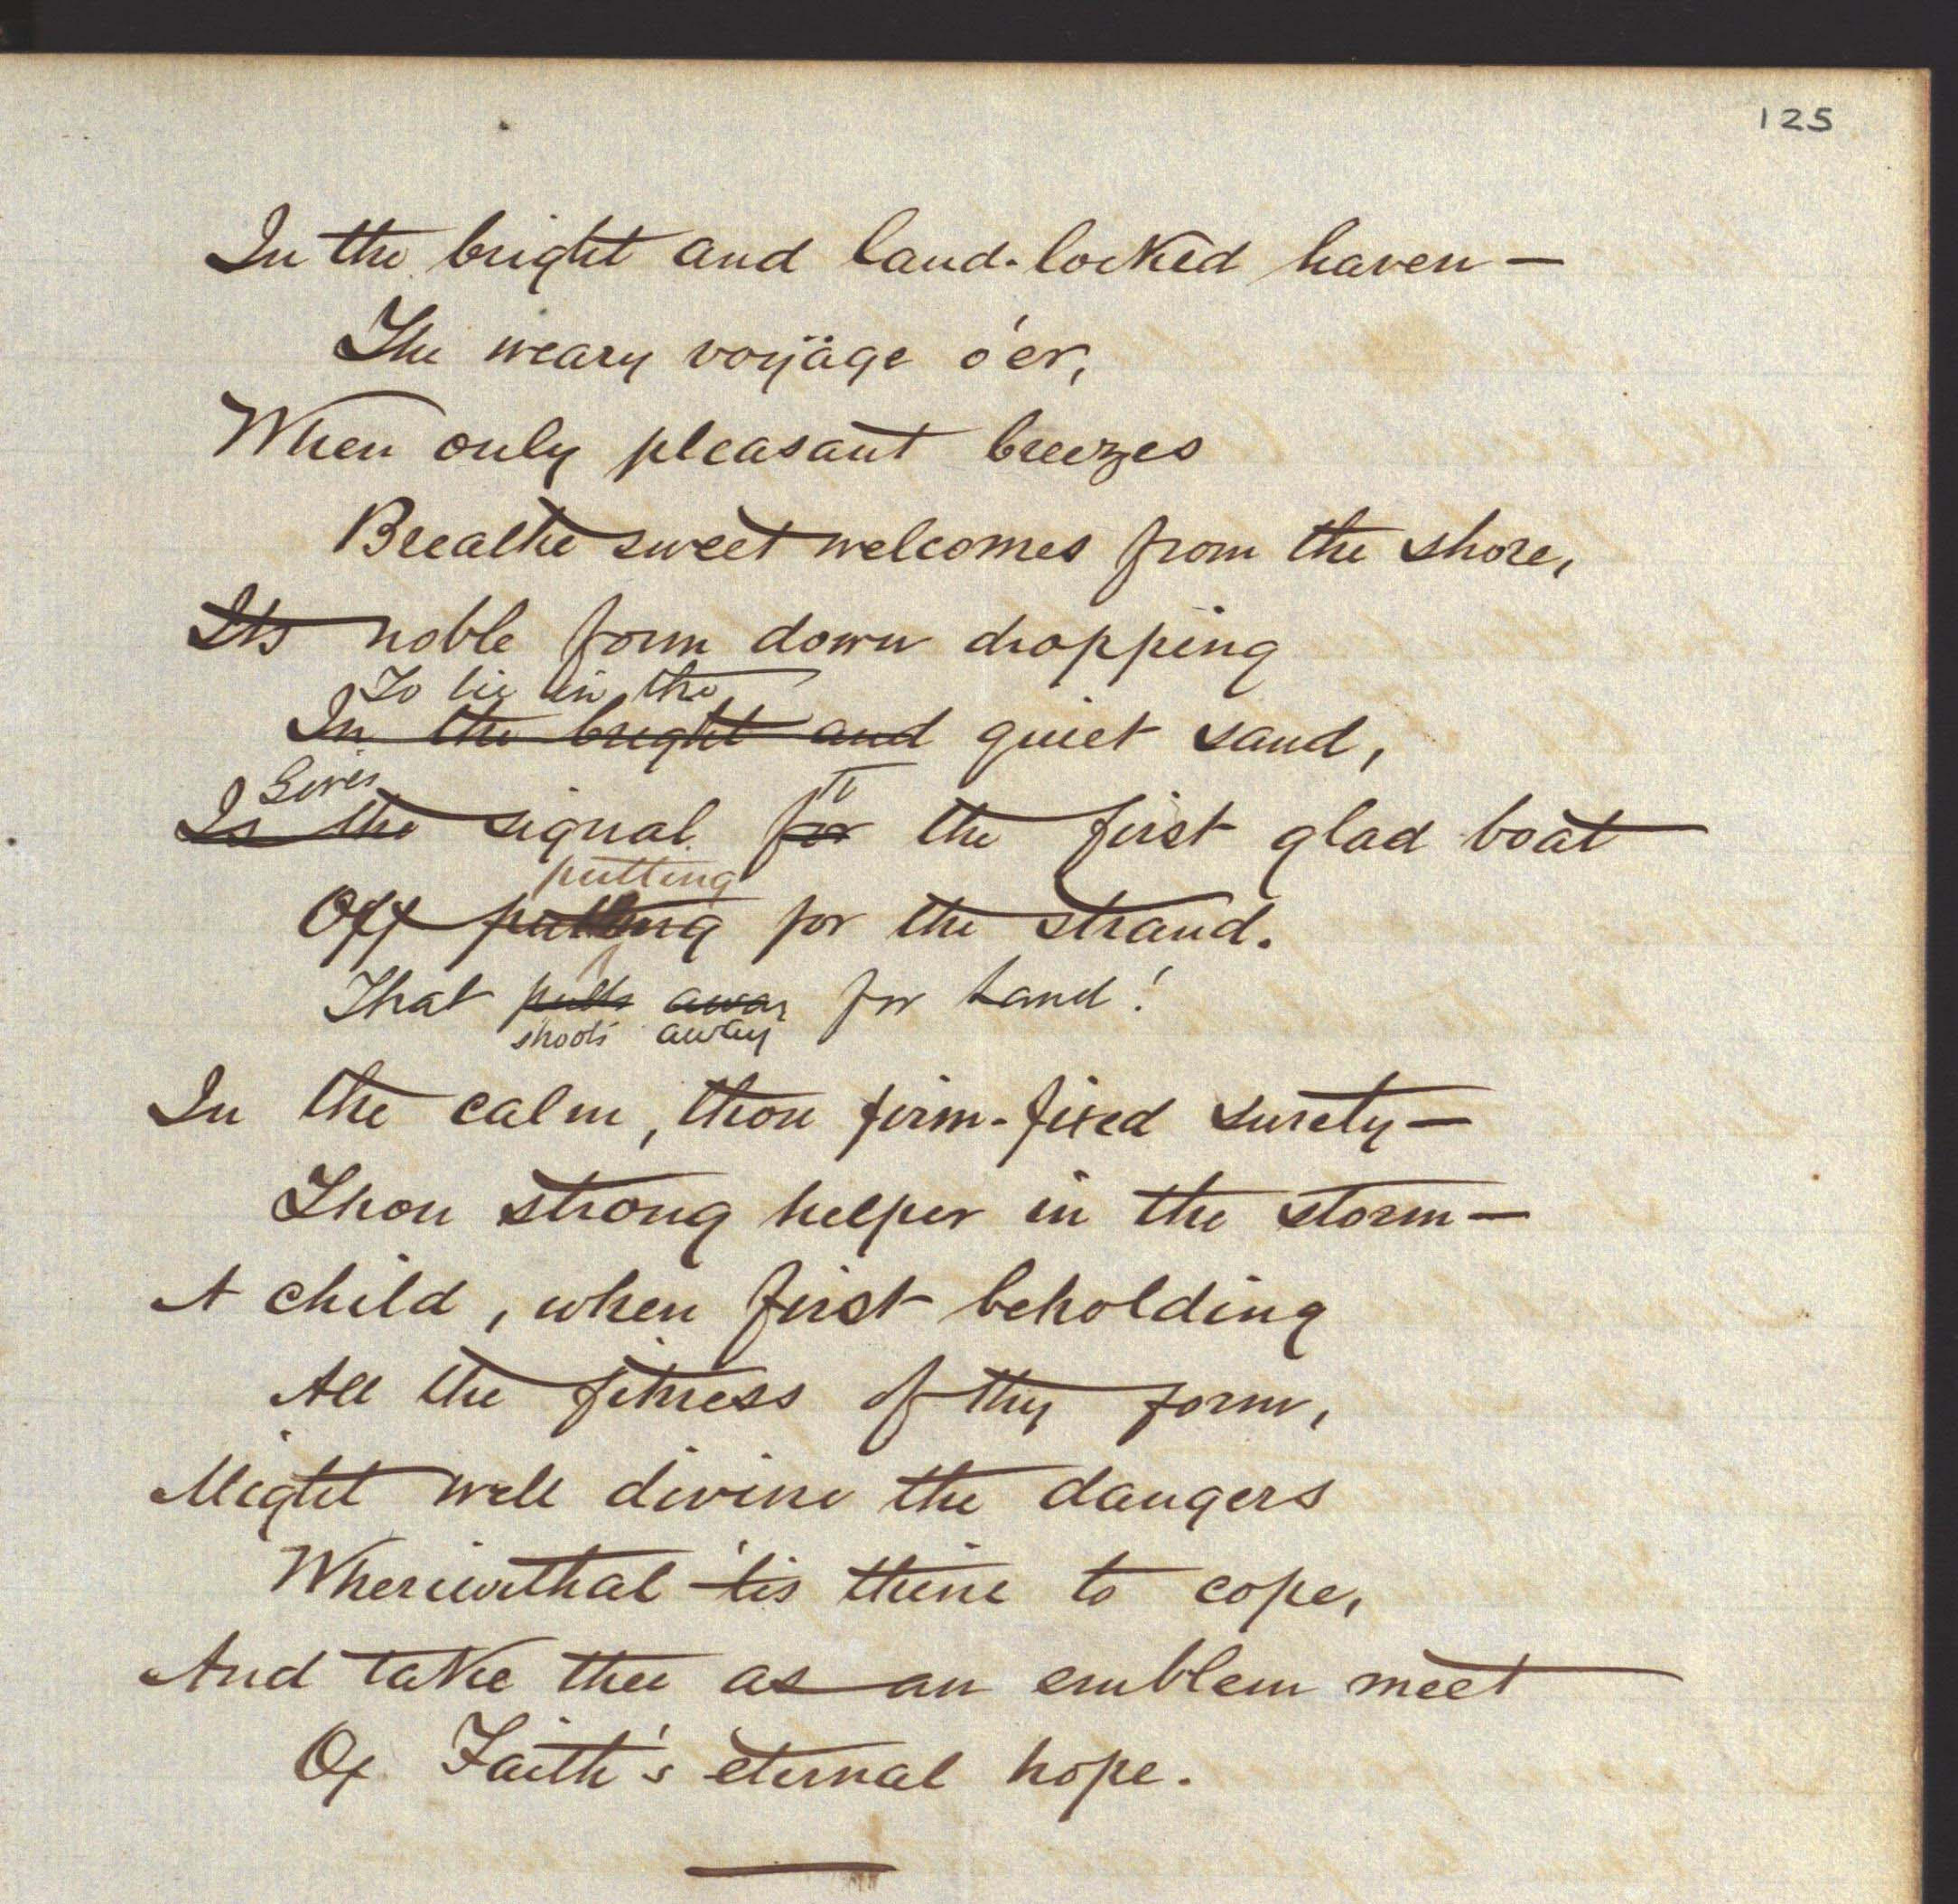 125
In the bright and land-locked haven —
The weary voyäge o'er,
When only pleasant breezes
Breathe sweet welcomes from the shore,
Its noble form down dropping
To lie in the
In the bright and quiet sand,
Gives
Is the signal for the first glad boat
putting
Off for the strand.
That pulls away for Land!
shoots away
In the calm, thou firm-fixed surety —
Thou strong helper in the storm —
A child, when first beholding
All the fitness of thy form,
Might well divine the dangers
Wherewithal 'tis thine to cope,
And take thee as an emblem meet
Of Faith's eternal hope.